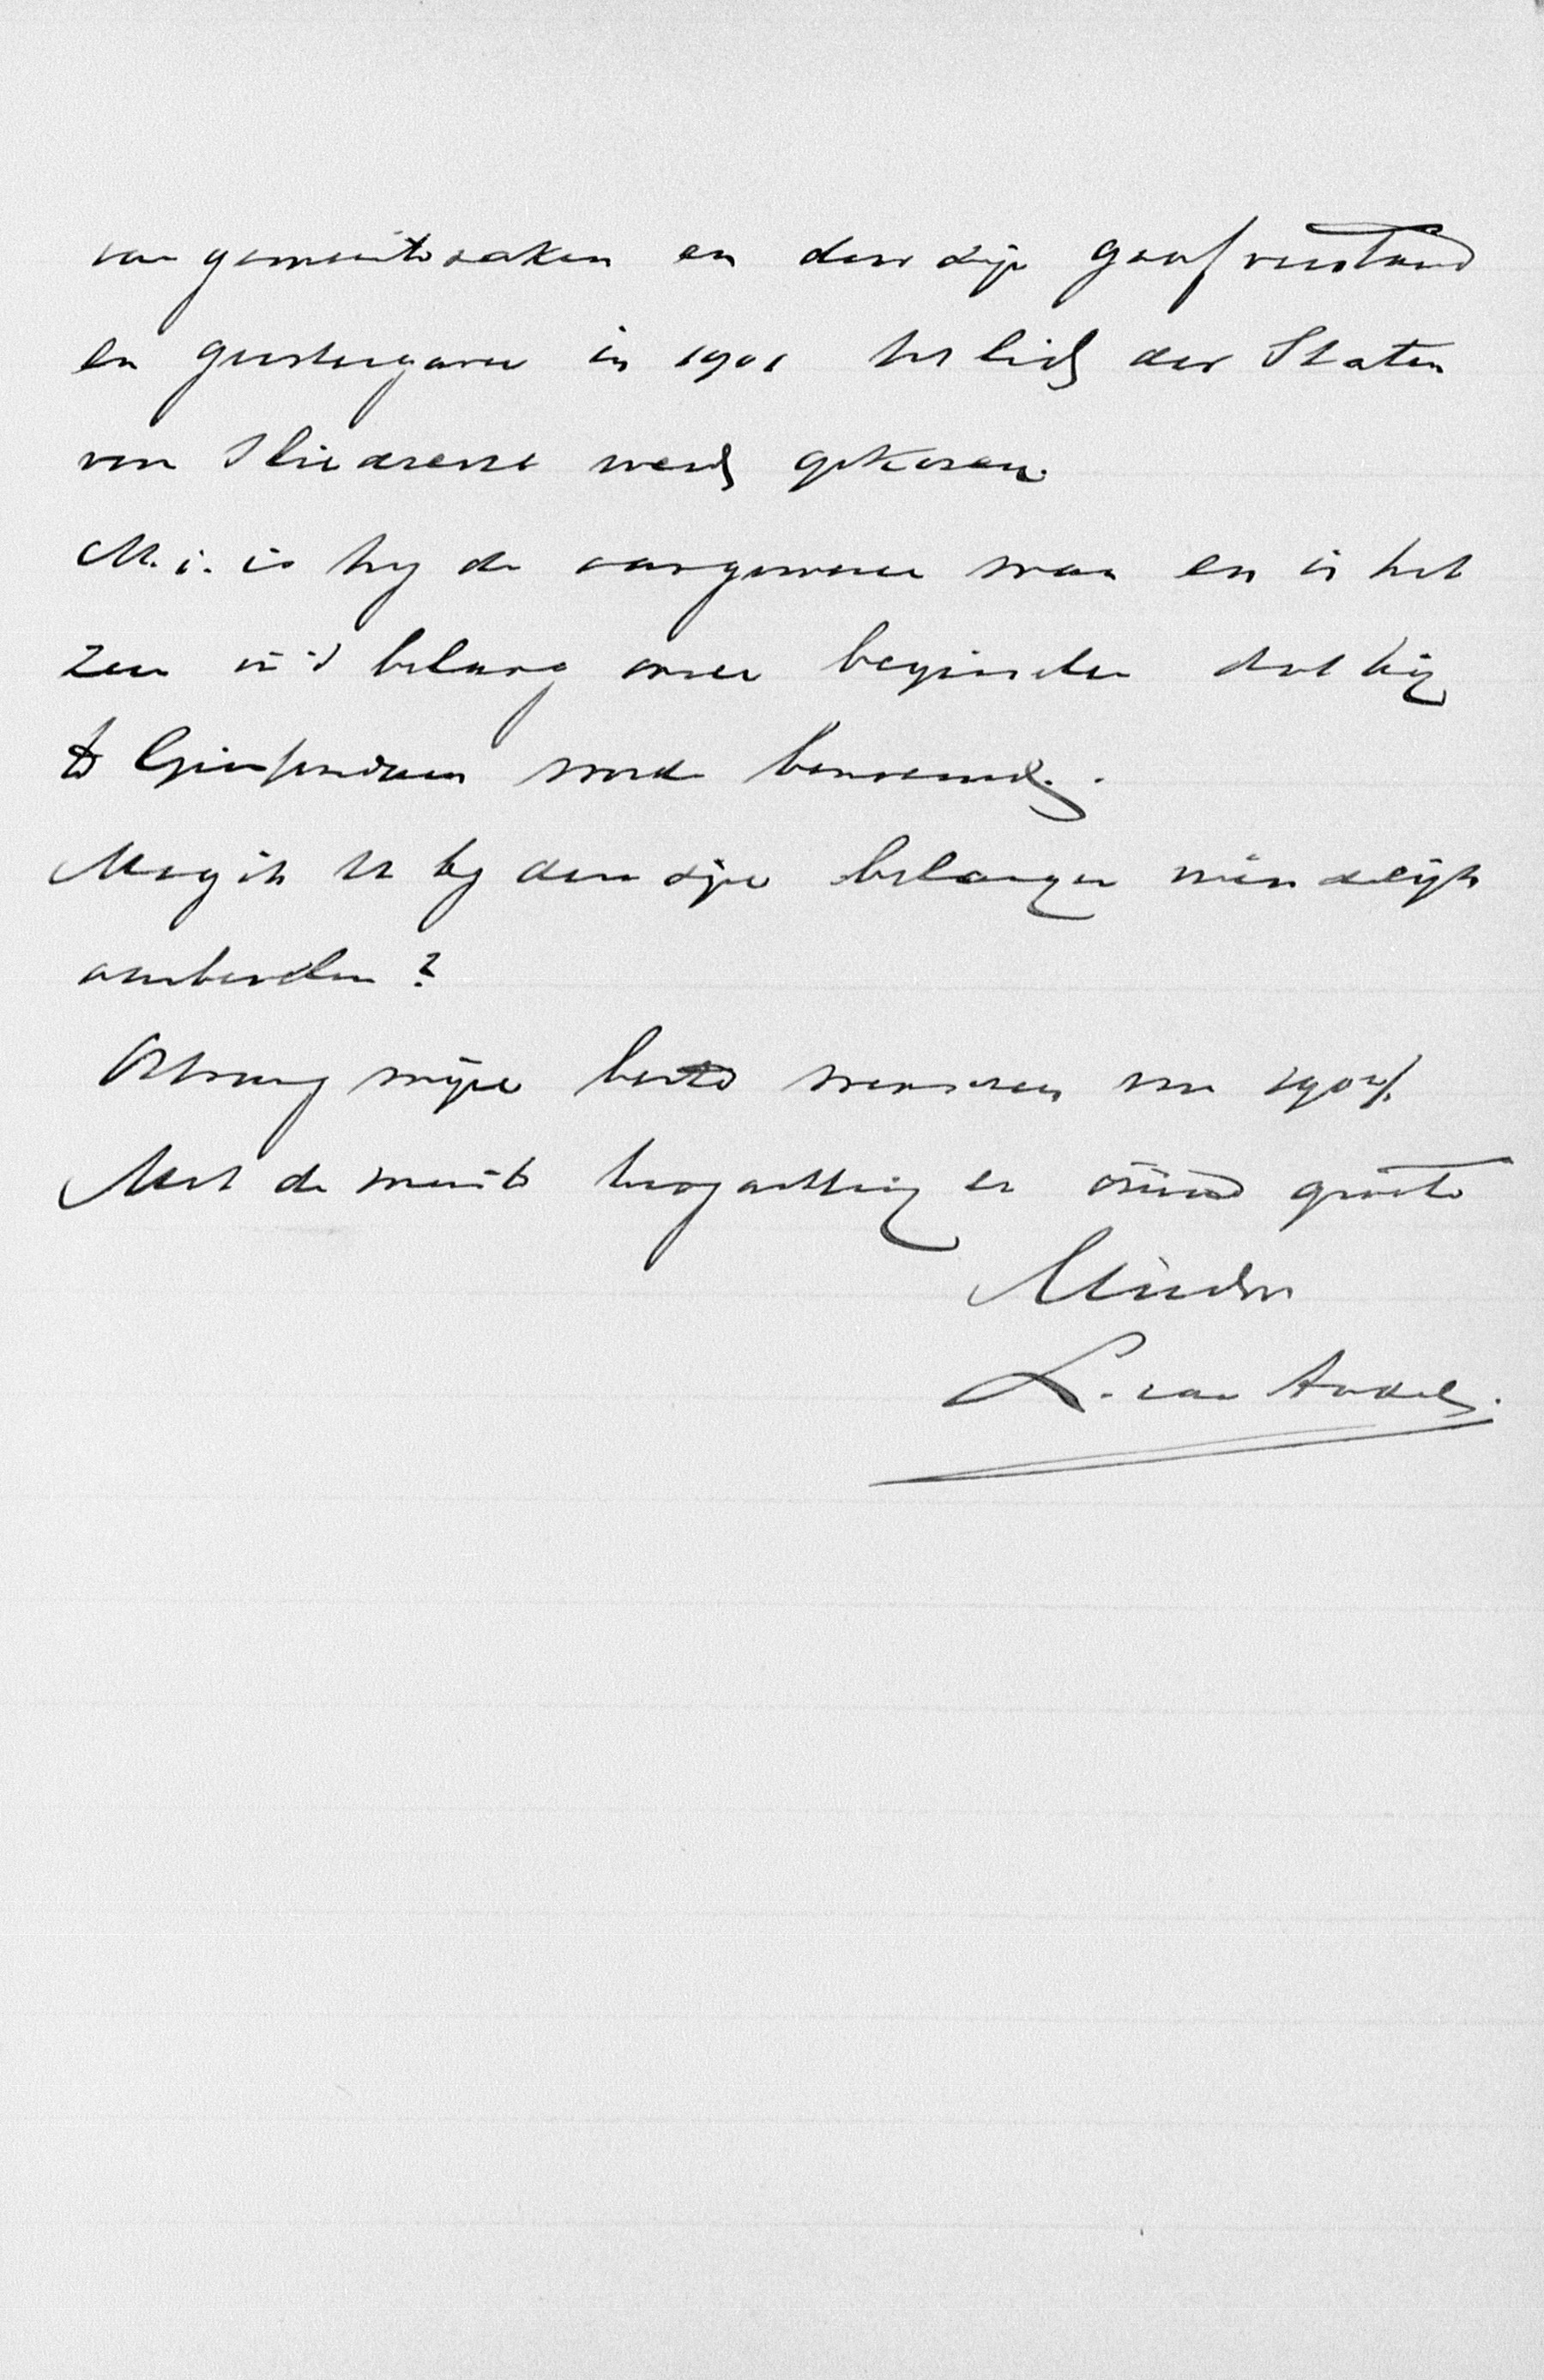 van gemeentezaken en door zijn gaaf verstand
en geestesgaven in 1901 tot lid der Staten
voor Sliedrecht werd gekozen.
M. i. is hij de aangewezen man en is het
zeer in 't belang onzer beginselen dat hij
te Giessendam worde benoemd.
Mag ik U bij dezen zijne belangen vriendelijk
aanbevelen?
Ontvang mijne beste wenschen voor 1904.
Met de meeste hoogachting en vriend groete
Uwdw
L. van Andel.